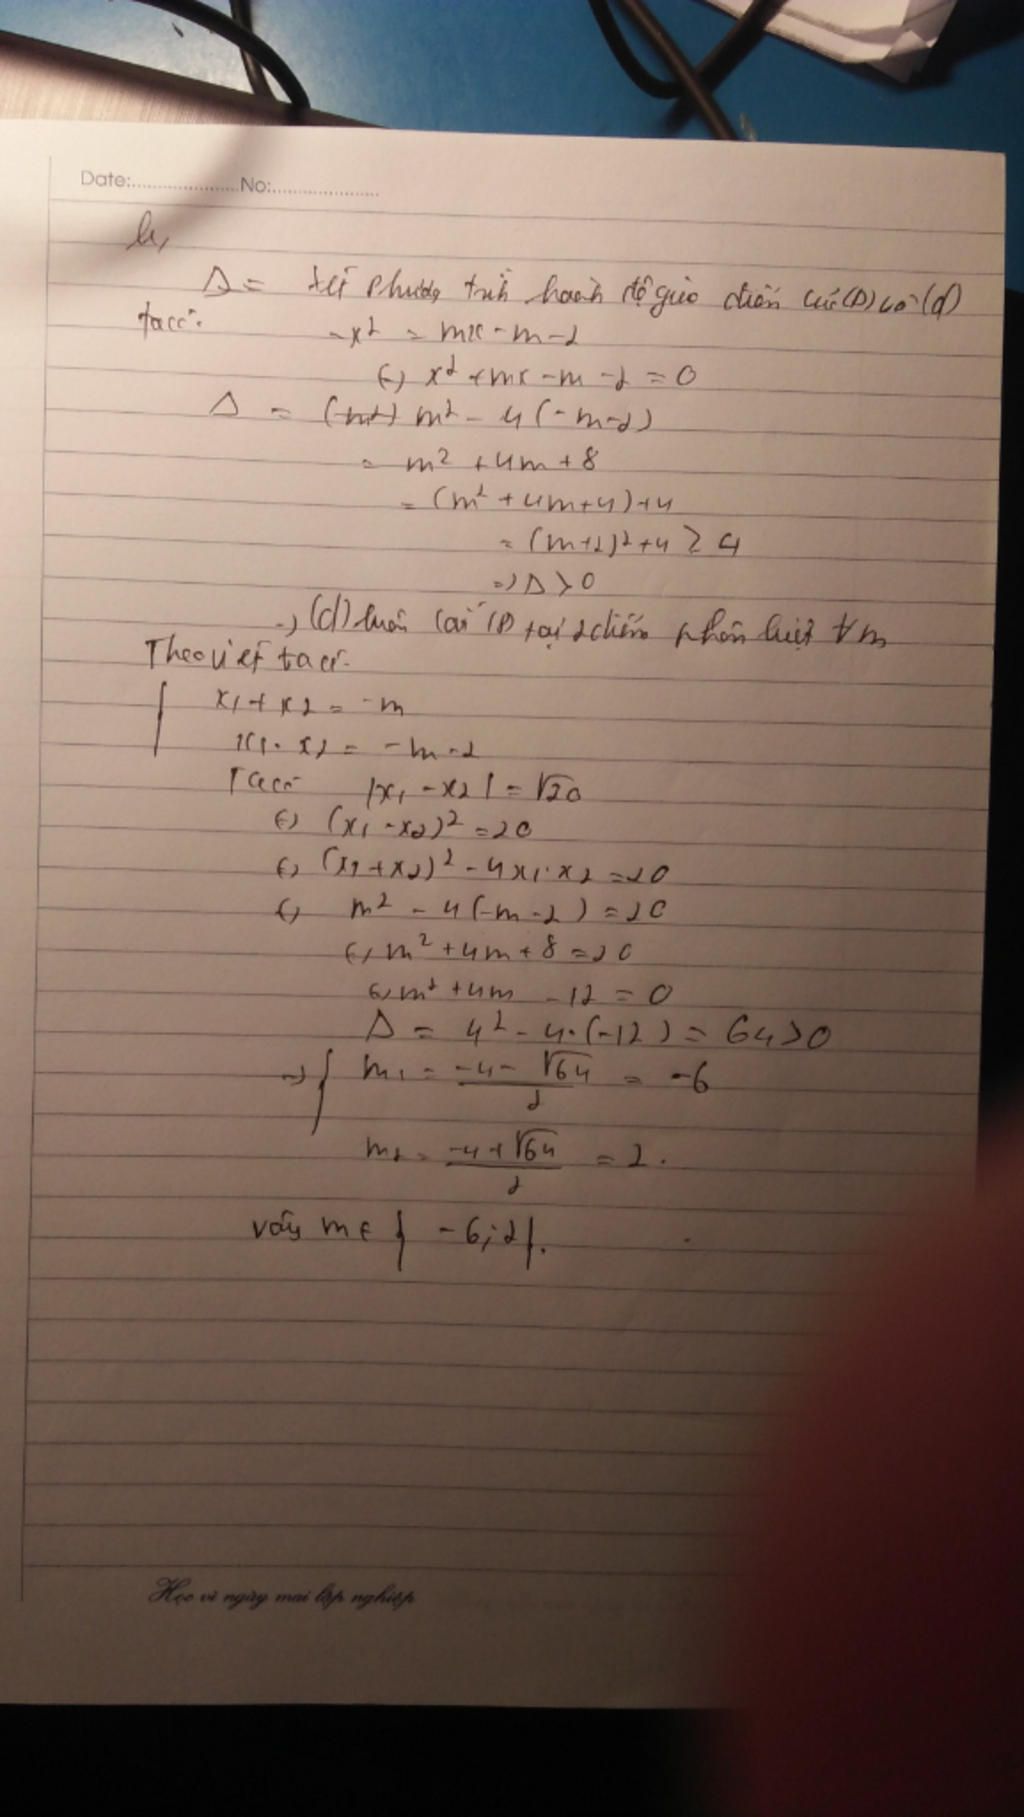 Date:.....................No:.....................
b,
Δ = Xét phương trình hoành độ giao điểm của (P) và (d)
ta có:
-x² = mx - m - 2
(=) x² + mx - m - 2 = 0
Δ = m² - 4(-m-2)
= m² + 4m + 8
= (m² + 4m + 4) + 4
= (m+2)² + 4 ≥ 4
=> Δ > 0
=> (d) luôn cắt (P) tại 2 điểm phân biệt ∀m
Theo viét ta có:
{ x₁ + x₂ = -m
x₁ . x₂ = -m-2
Ta có |x₁ - x₂| = √20
(=) (x₁ - x₂)² = 20
(=) (x₁ + x₂)² - 4x₁.x₂ = 20
(=) m² - 4(-m-2) = 20
(=) m² + 4m + 8 = 20
(=) m² + 4m - 12 = 0
Δ = 4² - 4.(-12) = 64 > 0
=> { m₁ = (-4 - √64)/2 = -6
m₂ = (-4 + √64)/2 = 2.
vậy m ∈ { -6; 2}.
Học vì ngày mai lập nghiệp